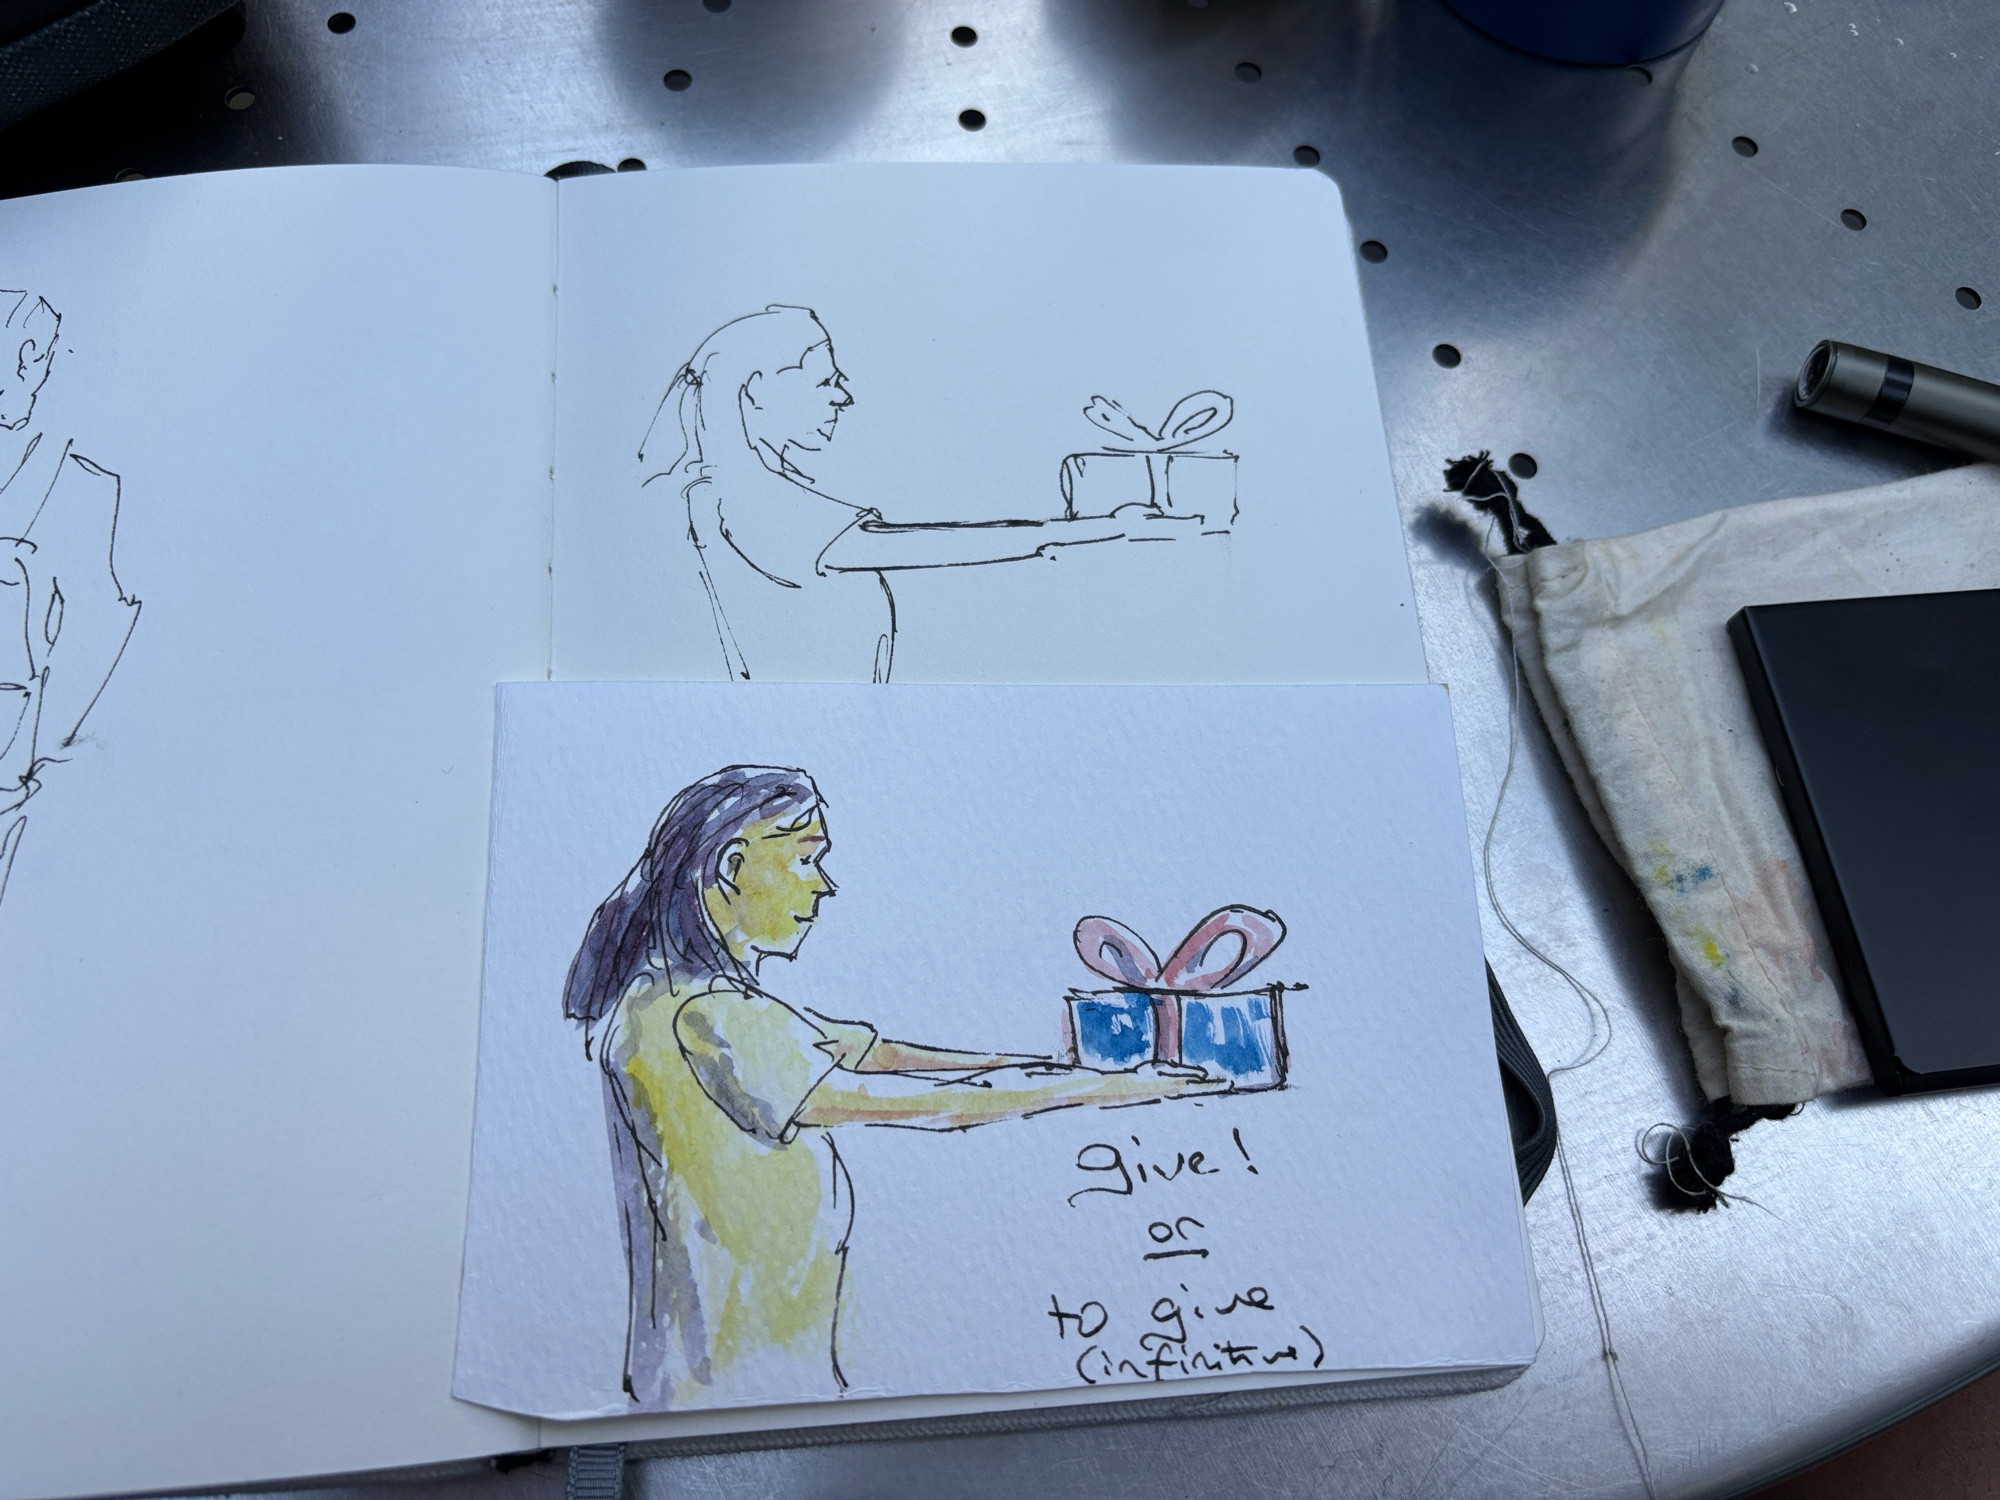 give!
or
to give
(infinitive)